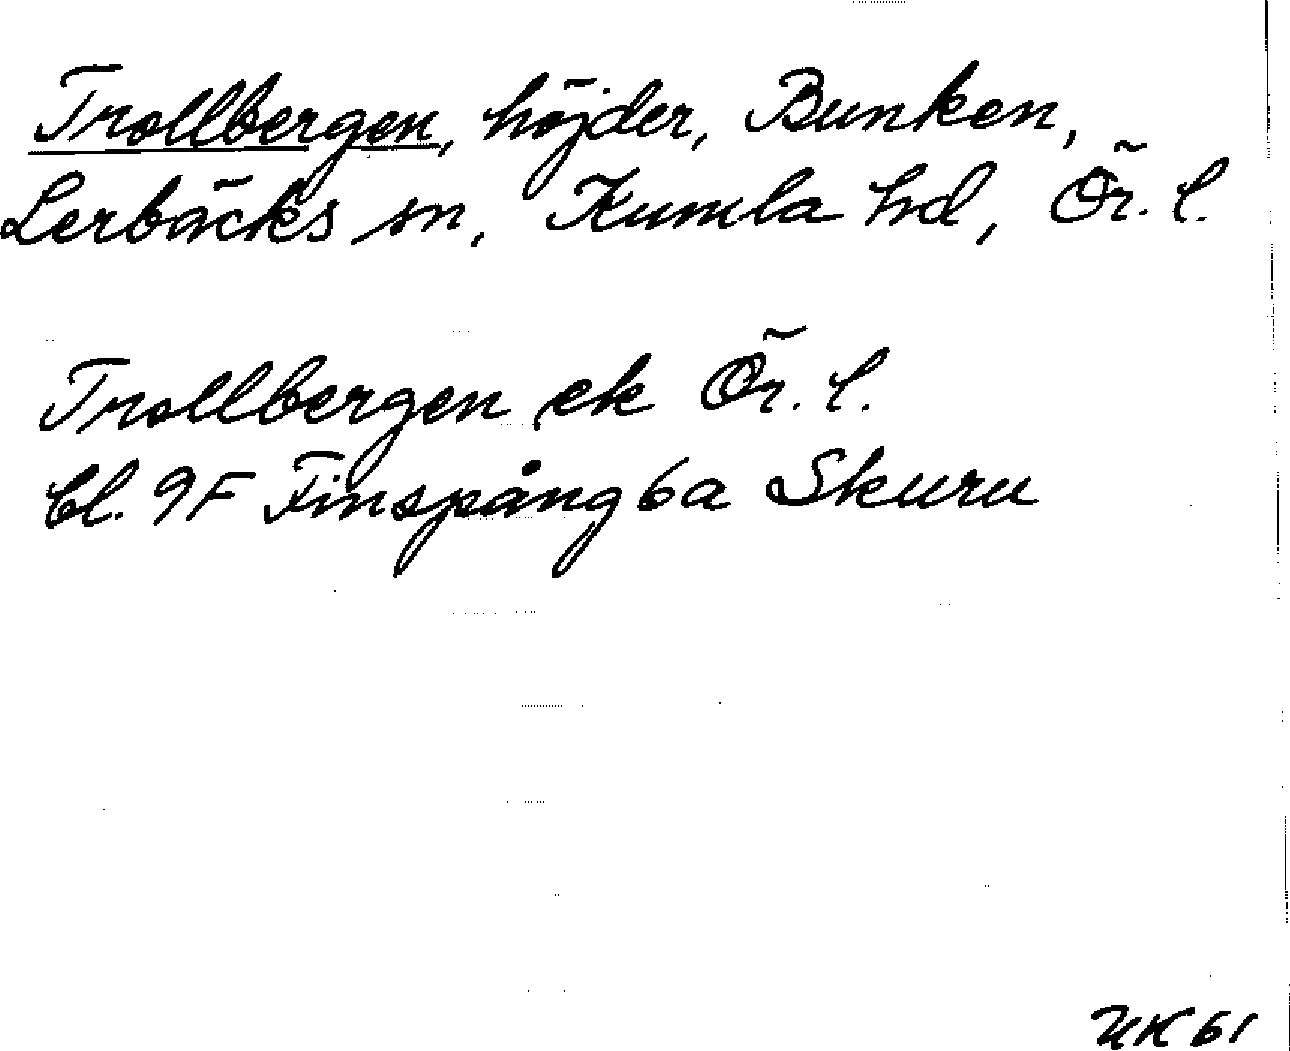 Trollbergen, höjder, Bunken,
Lerbäcks sn, Kumla hd, Ör. l.
Trollbergen ek Ör. l.
bl. 9F Finspång 6a Skuru
UK 61